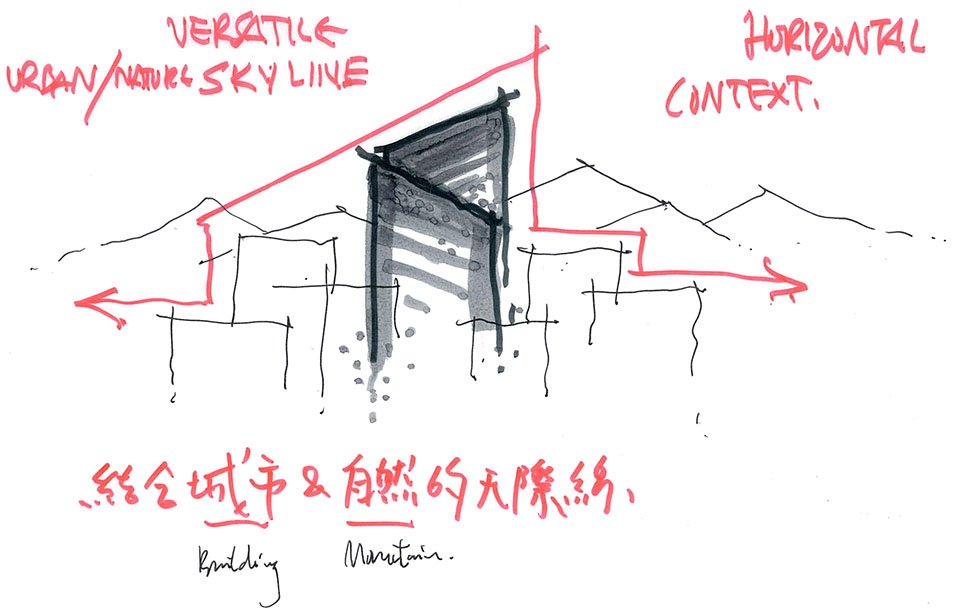 VERSATILE
URBAN/NATURE SKYLINE
HORIZONTAL
CONTEXT.
結合城市&自然的天際線、
Building
Mountain.